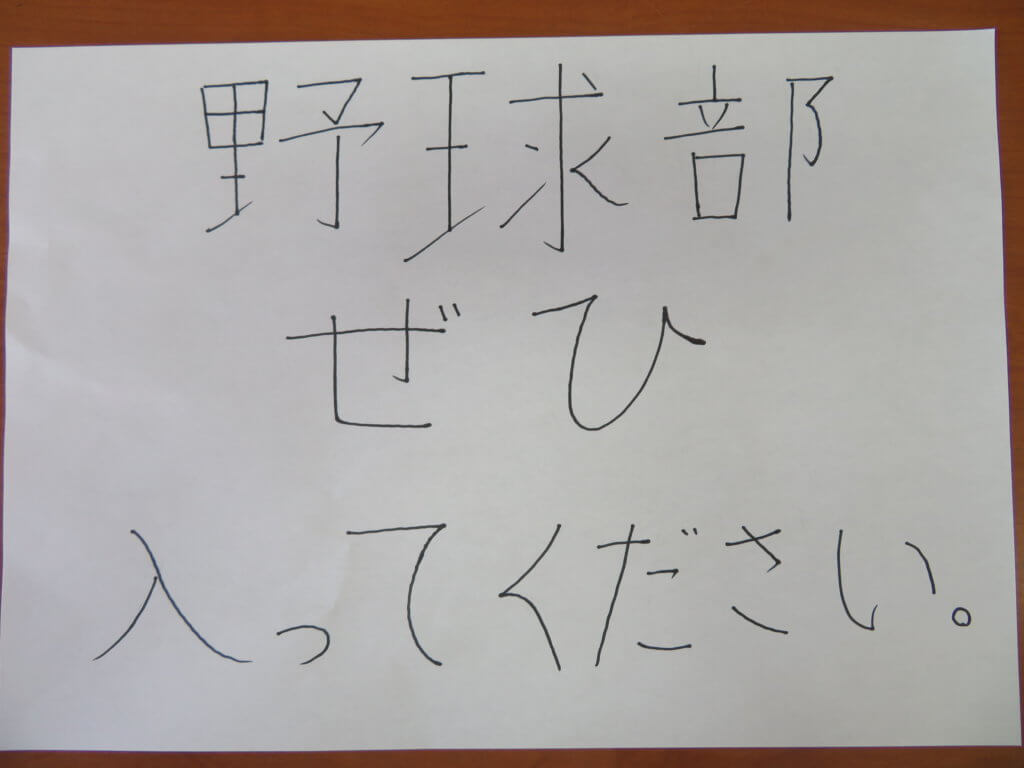 野球部
ぜひ
入ってください。